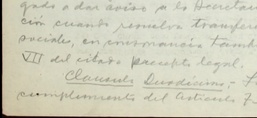 gado a dar aviso a la Secretar
ción cuando resuelva transferi
sociales, en consonancia tambi
VII del citado precepto legal.
Clausula Duodécima.-
cumplimiento del Artículo